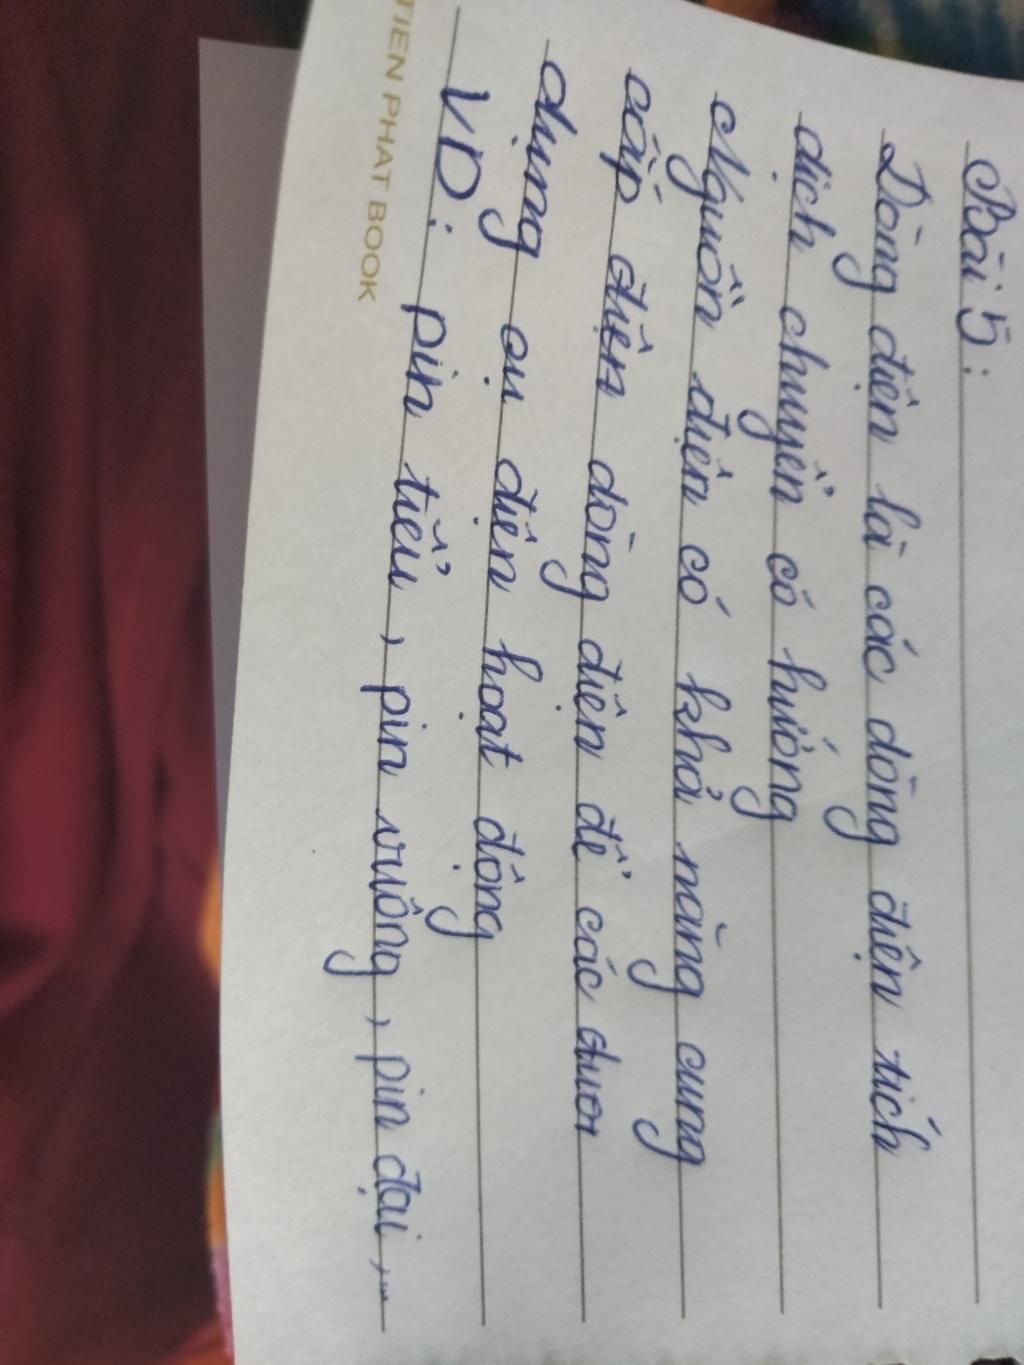 Bài 5:
Dòng điện là các dòng điện tích
dịch chuyển có hướng
Nguồn điện có khả năng cung
cấp điện dòng điện để các
dụng cụ điện hoạt động
VD: pin tiểu, pin vuông, pin đại,...
TIEN PHAT BOOK